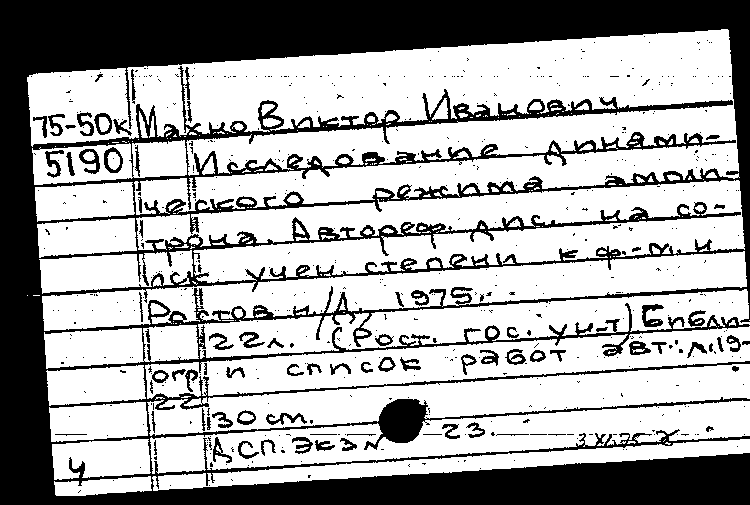 75-50к Махно, Виктор Иванович
5190 Исследование динами-
ческого режима ампли-
трона. Автореф. дис. на со-
иск. учен. степени к.ф.-м.н.
Ростов н/Д, 1975.
22л. (Рост. гос. ун-т) Библи-
огр. и список работ авт.: л.19-
22
30 см.
ДСП. экз № 23.
3 XI.75
Ч